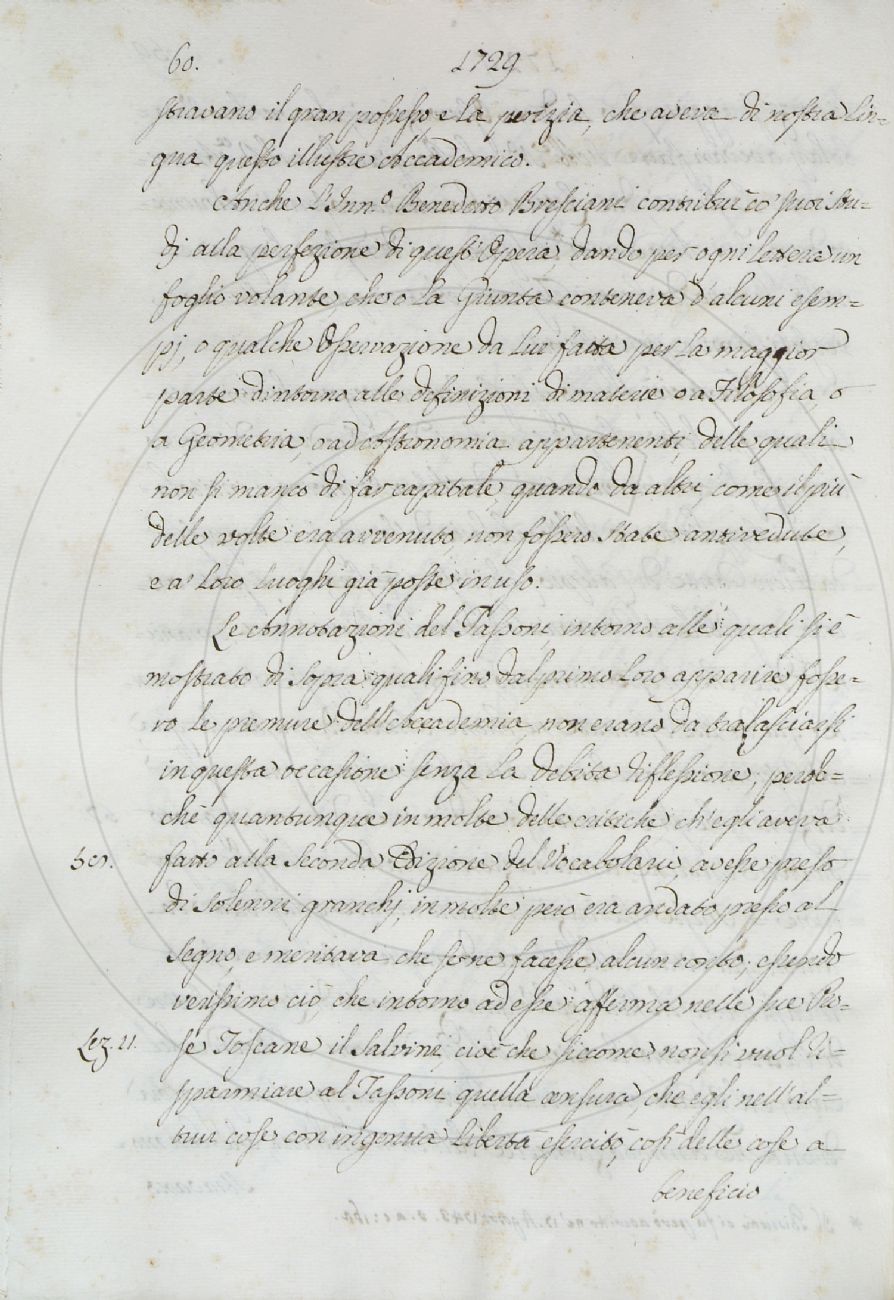 60. 1729
stravano il gran possesso, e la perizia, che aveva di nostra Lin=
gua questo illustre Accademico.
Anche l'Inn.º Benedetto Bresciani contribuì co' suoi stu=
dj alla perfezione di quest'Opera, dando per ogni lettera un
foglio volante, che o la Giunta conteneva d'alcuni esem=
pj, o qualche Osservazione da lui fatta per la maggior
parte dintorno alle definizioni di materie o a Filosofia, o
a Geometria, o ad Astronomia appartenenti, delle quali
non si mancò di far capitale, quando da altri, come il più
delle volte era avvenuto, non fossero state antivedute,
e a' loro luoghi già poste in uso.
Le Annotazioni del Tassoni, intorno alle quali si è
mostrato di sopra quali fino dal primo loro apparire fosse=
ro le premure dell'Accademia, non erano da tralasciarsi
in questa occasione senza la debita riflessione; peroc=
chè quantunque in molte delle critiche ch'egli aveva
fatto alla seconda Edizione del Vocabolario, avesse preso
di solenni granchj, in molte però era andato presso al
segno, e meritava che se ne facesse alcun conto; essendo
verissimo ciò, che intorno ad esse afferma nelle sue Pro=
Lez. 21.
se Toscane il Salvini, cioè che siccome non si vuol ri=
sparmiare al Tassoni quella censura, che egli nell'al=
trui cose con ingenua libertà esercitò, così delle cose a
beneficio